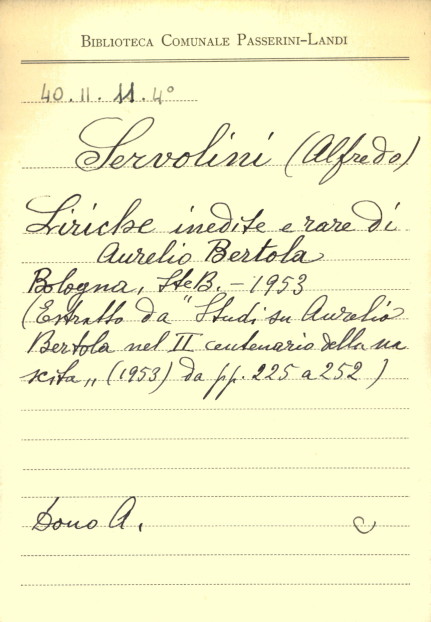 BIBLIOTECA COMUNALE PASSERINI-LANDI
40.II.11.4°
Servolini (Alfredo)
Liriche inedite e rare di
Aurelio Bertola
Bologna, SteB. - 1953
(Estratto da "Studi su Aurelio
Bertola nel II centenario della na
scita„ (1953) da pp. 225 a 252)
Dono A.